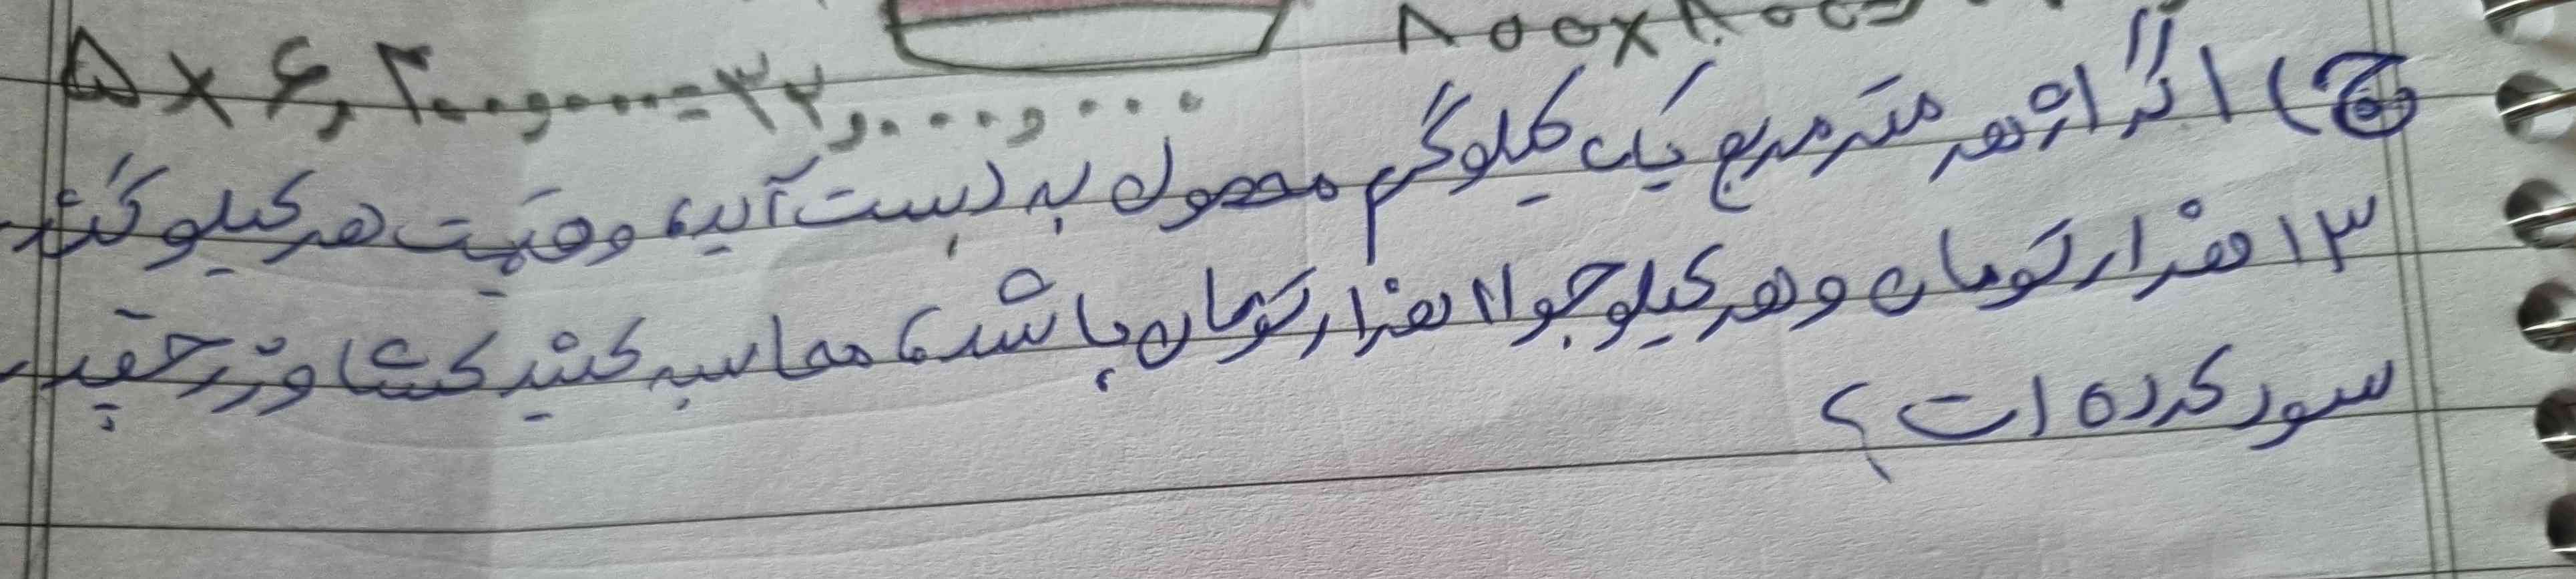 ۸۰۰×۸۰۰=
۵×۶,۴۰۰,۰۰۰=۳۲,۰۰۰,۰۰۰
ج) اگر از هر متر مربع یک کیلوگرم محصول به دست آید، و قیمت هر کیلو گندم
۱۳ هزار تومان و هر کیلو جو ۱۱ هزار تومان باشد، محاسبه کنید کشاورز چقدر
سود کرده است؟